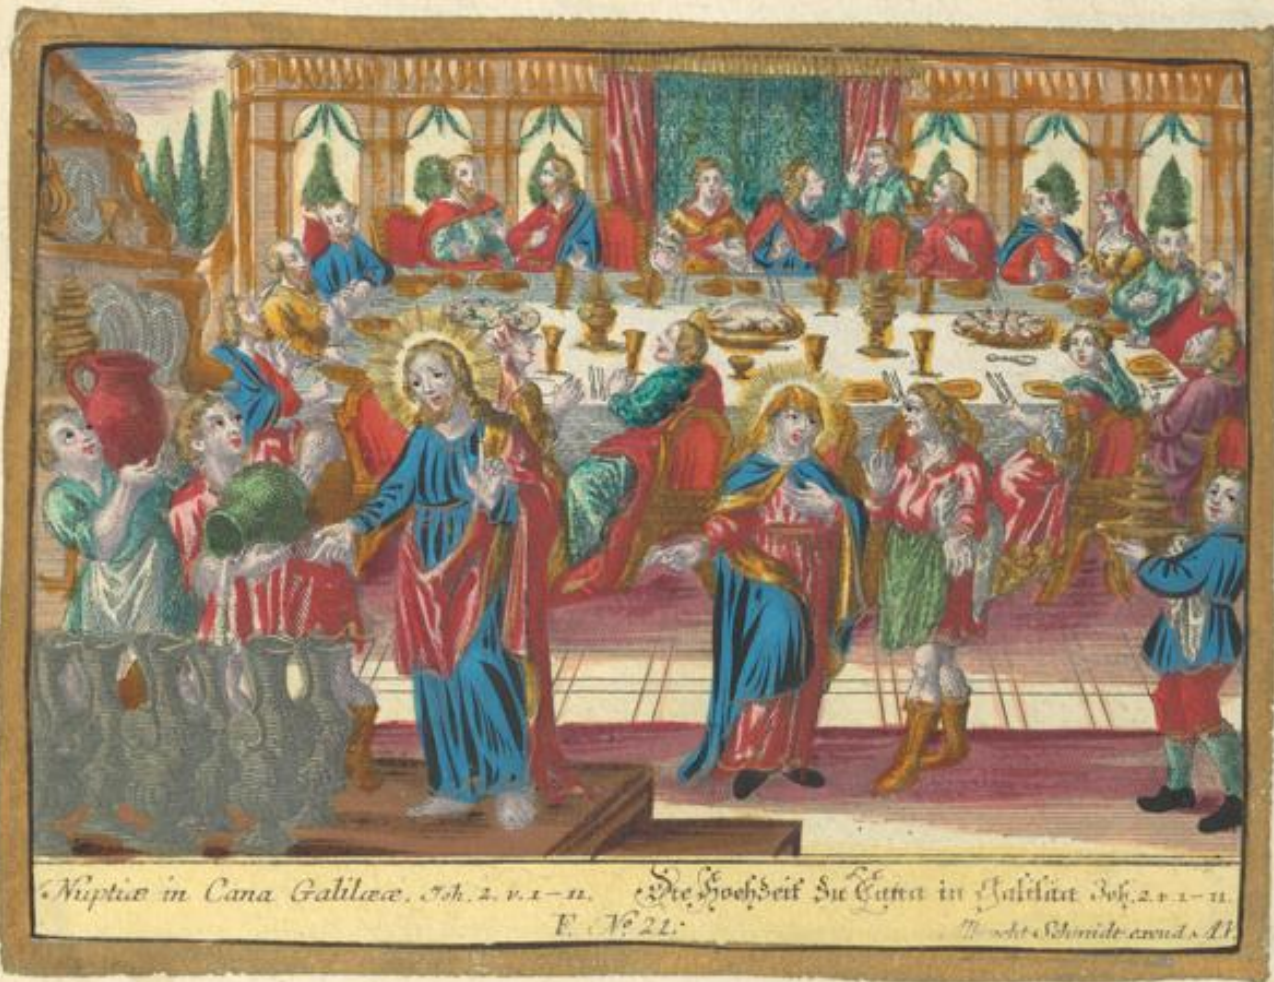 Nuptiæ in Cana Galilææ. Joh. 2. v. 1–11. Die Hochzeit zu Cana in Galiläa Joh. 2. v. 1–11.
F. Nº 21.
Schmidt excud. A.V.